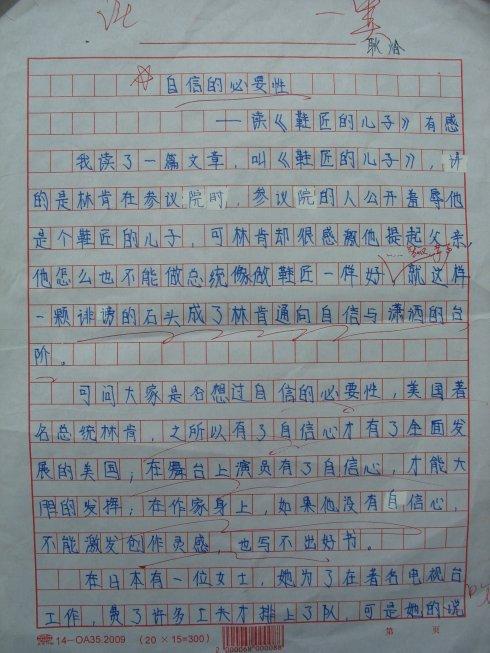 一类
耿洽
自信的必要性
——读《鞋匠的儿子》有感
我读了一篇文章，叫《鞋匠的儿子》，讲
的是林肯在参议院时，参议院的人公开羞辱他
是个鞋匠的儿子，可林肯却很感激他提起父亲，
他怎么也不能做总统像做鞋匠一样好，就这样
一颗诽谤的石头成了林肯通向自信与潇洒的台
阶。
可问大家是否想过自信的必要性，美国著
名总统林肯，之所以有了自信心才有了全面发
展的美国；在舞台上演员有了自信心，才能大
胆的发挥；在作家身上，如果他没有自信心，
不能激发创作灵感，也写不出好书。
在日本有一位女士，她为了在著名电视台
工作，费了许多工夫才排上了队，可是她的说
14-OA35.2009 (20×15=300)
第 页
2000068000088